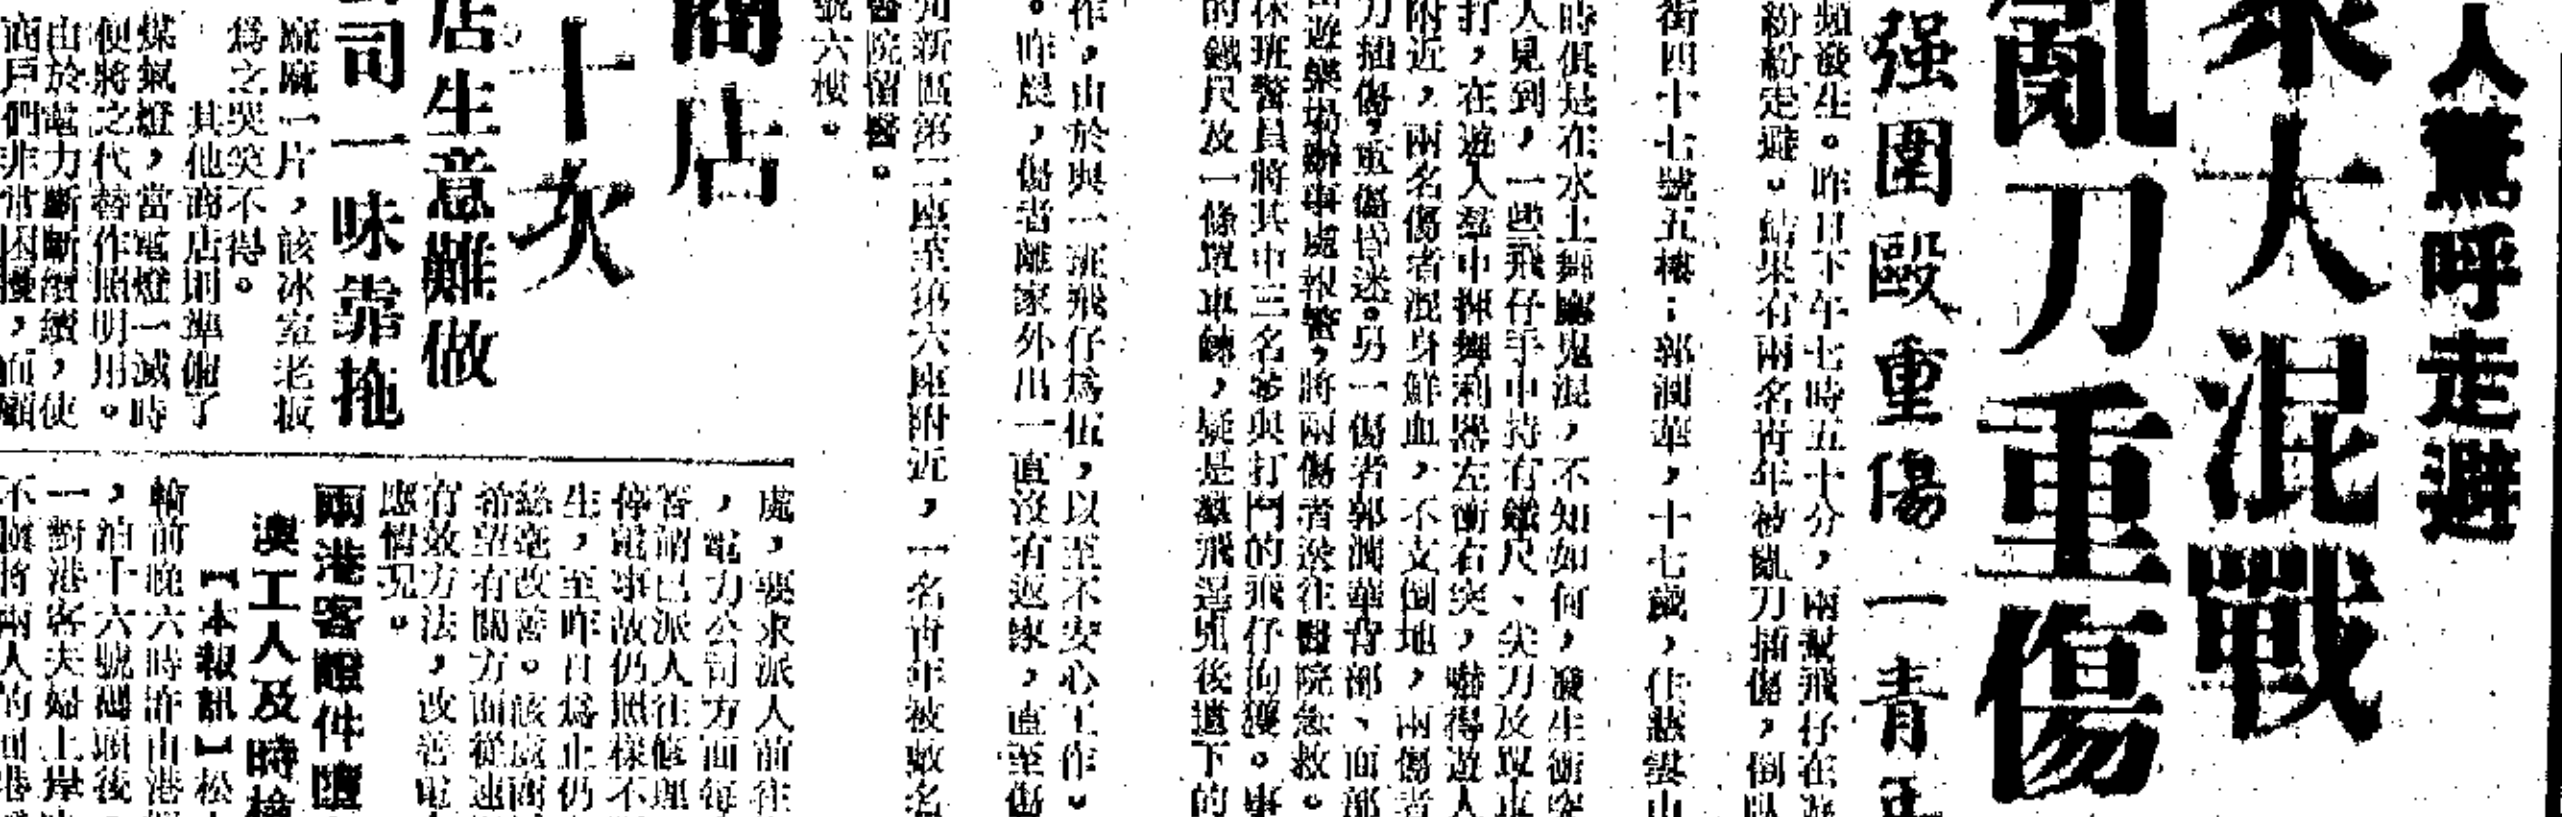 人驚呼走避
眾大混戰
亂刀重傷
强圍毆重傷一青年
頻發生。昨日下午七時五十分，兩幫飛仔在遊
紛紛走避。結果有兩名青年被亂刀插傷，倒臥
街四十七號五樓；郭潤華，十七歲，住慈雲山
時俱是在水上舞廳鬼混，不知如何，發生衝突
人見到，一些飛仔手中持有鐵尺、尖刀及單車
打，在遊人羣中揮舞利器左衝右突，嚇得遊人
附近，兩名傷者混身鮮血，不支倒地，兩傷者
刀插傷，重傷昏迷。另一傷者郭潤華背部、面部
遊樂場辦事處報警，將兩傷者送往醫院急救。
休班警員將其中三名參與打鬥的飛仔拘獲。事
的鐵尺及一條單車鍊，疑是羣飛逞兇後遺下的
作，由於與一班飛仔爲伍，以至不安心工作。
。昨晨，傷者離家外出一直沒有返家，直至傷
新區第二座至第六座附近，一名青年被數名
醫院留醫。
號六樓。
商店
十次
店生意難做
司一味靠拖
麻麻一片，該冰室老板
爲之哭笑不得。
其他商店則準備了
煤氣燈，當電燈一滅時
便將之代替作照明用。
由於電力斷斷續續，使
商戶們非常困擾，而顧
處，要求派人前往
，電力公司方面每
答謂已派人往修理
停電事故仍照樣不
生，至昨日爲止仍
絲毫改善。該處商
希望有關方面從速
有效方法，改善電
應情況。
兩港客證件
澳工人及時
【本報訊】松
輪前晚六時許由港
，泊十六號碼頭後
一對港客夫婦上岸
不慎將兩人的回港